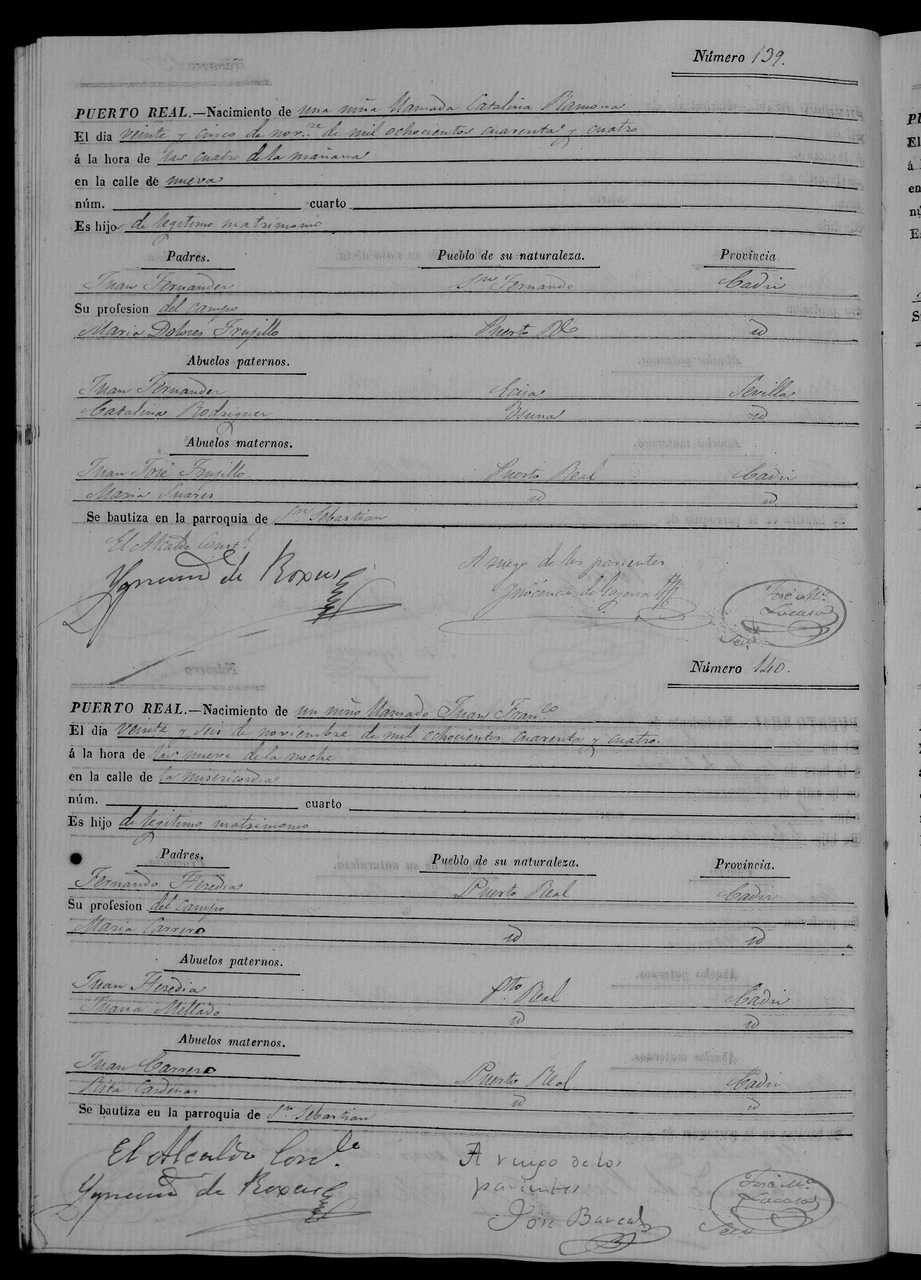 Número 139.
PUERTO REAL.—Nacimiento de una niña llamada Catalina Ramona
El dia veinte y cinco de nov.re de mil ochocientos cuarenta y cuatro
á la hora de las cuatro de la mañana
en la calle de nueva
núm. cuarto
Es hijo de legitimo matrimonio
Padres. Pueblo de su naturaleza. Provincia
Juan Fernandez Sn Fernando Cadiz
Su profesion del campo
Maria Dolores Trujillo Puerto Rl id
Abuelos paternos.
Juan Fernandez Ecija Sevilla
Catalina Rodriguez Osuna id
Abuelos maternos.
Juan José Trujillo Puerto Real Cadiz
Maria Suares id id
Se bautiza en la parroquia de Sn Sebastian
El Alcalde Const.l
A ruego de los parientes
de Roxas
José Ma.
Lacasa
Srio
Número 140.
PUERTO REAL.—Nacimiento de un niño llamado Juan Franco
El dia veinte y seis de noviembre de mil ochocientos cuarenta y cuatro.
á la hora de las nueve de la noche
en la calle de la misericordia
núm. cuarto
Es hijo de legitimo matrimonio
Padres. Pueblo de su naturaleza. Provincia.
Fernando Heredia Puerto Real Cadiz
Su profesion del campo
Maria Carrero id id
Abuelos paternos.
Juan Heredia Pto. Real Cadiz
Maria Mellado id id
Abuelos maternos.
Juan Carrero Puerto Real Cadiz
Rita Cardenas id id
Se bautiza en la parroquia de Sn Sebastian
El Alcalde Cons.l
A ruego de los
parientes
de Roxas
José
José Ma.
Lacasa
Srio